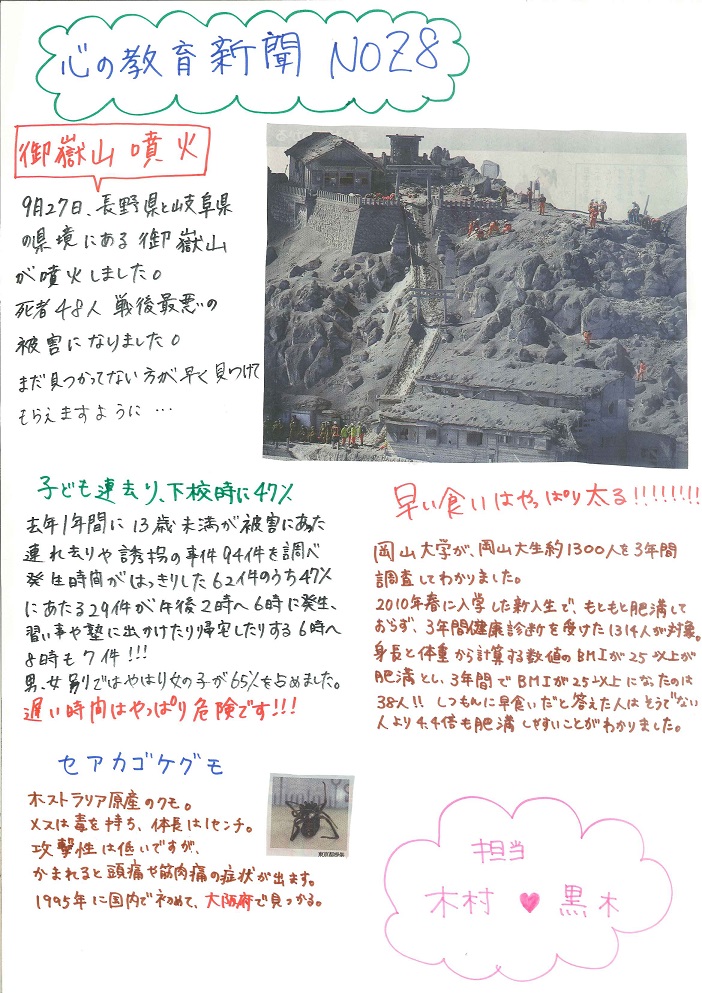 心の教育新聞 NO28
御嶽山噴火
9月27日、長野県と岐阜県
の県境にある御嶽山
が噴火しました。
死者48人 戦後最悪の
被害になりました。
まだ見つかってない方が早く見つけて
もらえますように…
子ども連去り、下校時に47%
去年1年間に13歳未満が被害にあった
連れ去りや誘拐の事件94件を調べ
発生時間がはっきりした62件のうち47%
にあたる29件が午後2時〜6時に発生、
習い事や塾に出かけたり帰宅したりする6時〜
8時も7件!!!
男、女別ではやはり女の子が65%を占めました。
遅い時間はやっぱり危険です!!!
早い食いはやっぱり太る!!!!!!!!
岡山大学が、岡山大生約1300人を3年間
調査してわかりました。
2010年春に入学した新入生で、もともと肥満して
おらず、3年間健康診断を受けた1314人が対象。
身長と体重から計算する数値のBMIが25以上が
肥満とし、3年間でBMIが25以上になったのは
38人!! しつもんに早食いだと答えた人はそうでない
人より4.4倍も肥満しやすいことがわかりました。
セアカゴケグモ
オストラリア原産のクモ。
メスは毒を持ち、体長は1センチ。
攻撃性は低いですが、
かまれると頭痛や筋肉痛の症状が出ます。
1995年に国内で初めて、大阪府で見つかる。
東京都提供
担当
木村 ♥ 黒木